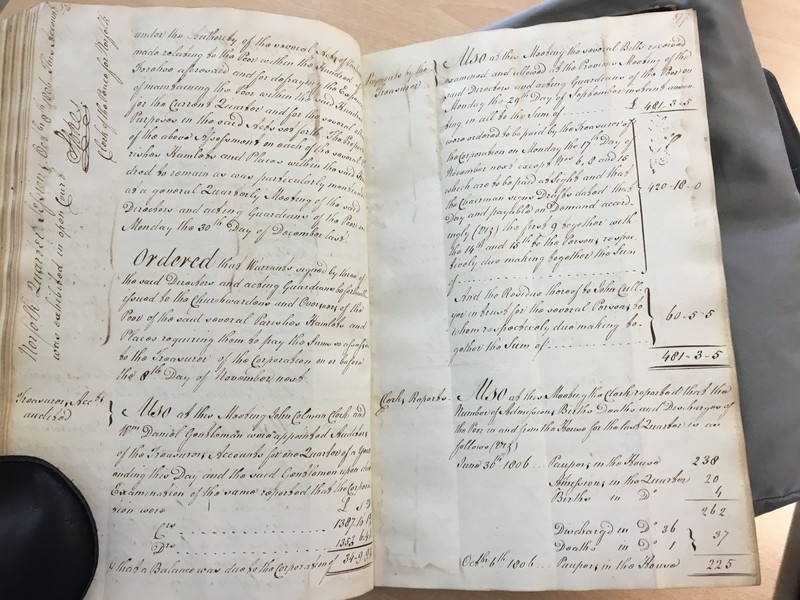 under the Authority of the several Acts of
made relating to the Poor within the Hundred of
Forehoe aforesaid and for defraying the Expences
of maintaining the Poor within the said Hundred
for the Current Quarter and for the several other
Purposes in the said Acts set forth. The
of the above Assessment on each of the several
rishes Hamlets and Places within the said
dred to remain as was particularly mentioned
at a general Quarterly Meeting of the said
Directors and acting Guardians of the Poor on
Monday the 30th Day of December last
Ordered that Warrants signed by three of
the said Directors and acting Guardians be forthwith
issued to the Churchwardens and Overseers of the
Poor of the said several Parishes Hamlets and
Places requiring them to pay the Sums so assess'd
to the Treasurer of the Corporation on or before
the 8th Day of November next
Treasurers Accts
audited
Also at this Meeting John Colman Clerk and
Wm Daniel Gentleman were appointed Auditors
of the Treasurers Accounts for one Quarter of a Year
ending this Day and the said Gentlemen upon their
Examination of the same reported that the Corpora
tion were
£ S D
Crs
Drs
that a Balance was due to the Corporation of
Norfolk Quarter Sessions
was exhibited in open Court
Clerk of the Peace for Norfolk
Payments by the
Treasurer
Also at this Meeting the several Bills received
examined and allowed at the Previous Meeting of the
said Directors and acting Guardians of the Poor on
Monday the 29th Day of September instant amount
ting in all to the Sum of £ 481-3-5
were ordered to be paid by the Treasurer of
the Corporation on Monday the 17th Day of
November next except Nos 6, 8 and 15
which are to be paid at Sight and that
the Chairman signs Drafts dated that
Day and payable on Demand accord-
ingly (Vizt) the first 9 together with
the 14th and 15th to the Persons respec-
tively due making together the Sum
of 420-18-0
And the Residue thereof to John Cull-
yer in trust for the several Persons to
whom respectively due making to-
gether the Sum of 60-5-5
481-3-5
Clerks Reports
Also at this Meeting the Clerk reported that the
Number of Admissions Births Deaths and Discharges of
the Poor in and from the House for the last Quarter is as
follows (Vizt)
June 30th 1806 Paupers in the House 238
Admissions in the Quarter 20
Births in Do 4
262
Discharg'd in Do 36
Deaths in Do 1 } 37
Octr 6th 1806 Paupers in the House 225